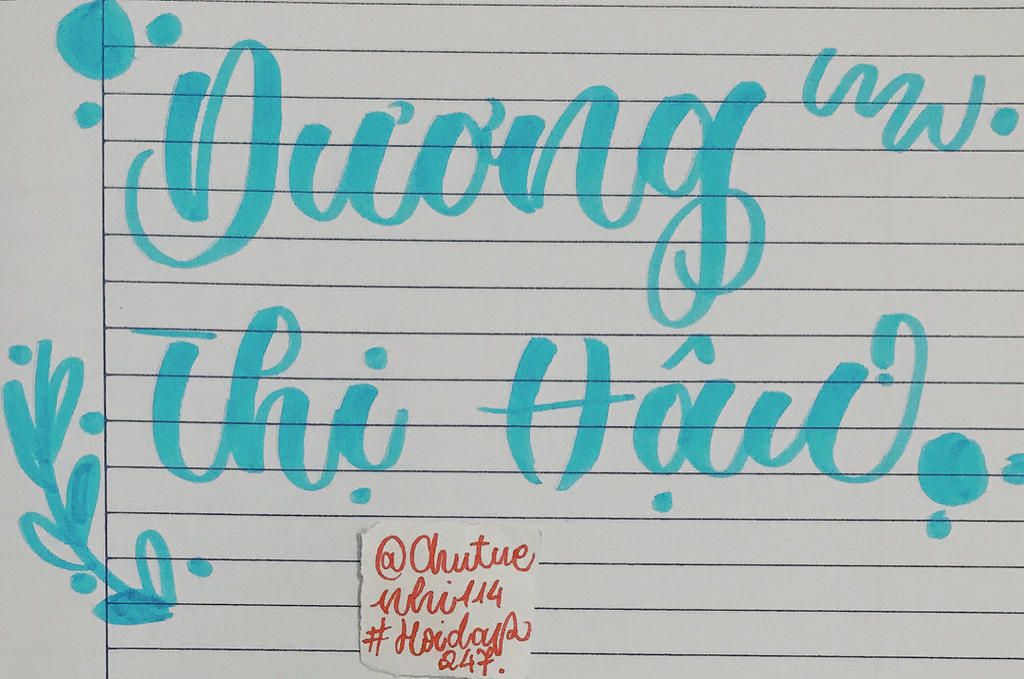 Dương
Thị Hậu
@Chutue
nhi114
#Hoidap
247.